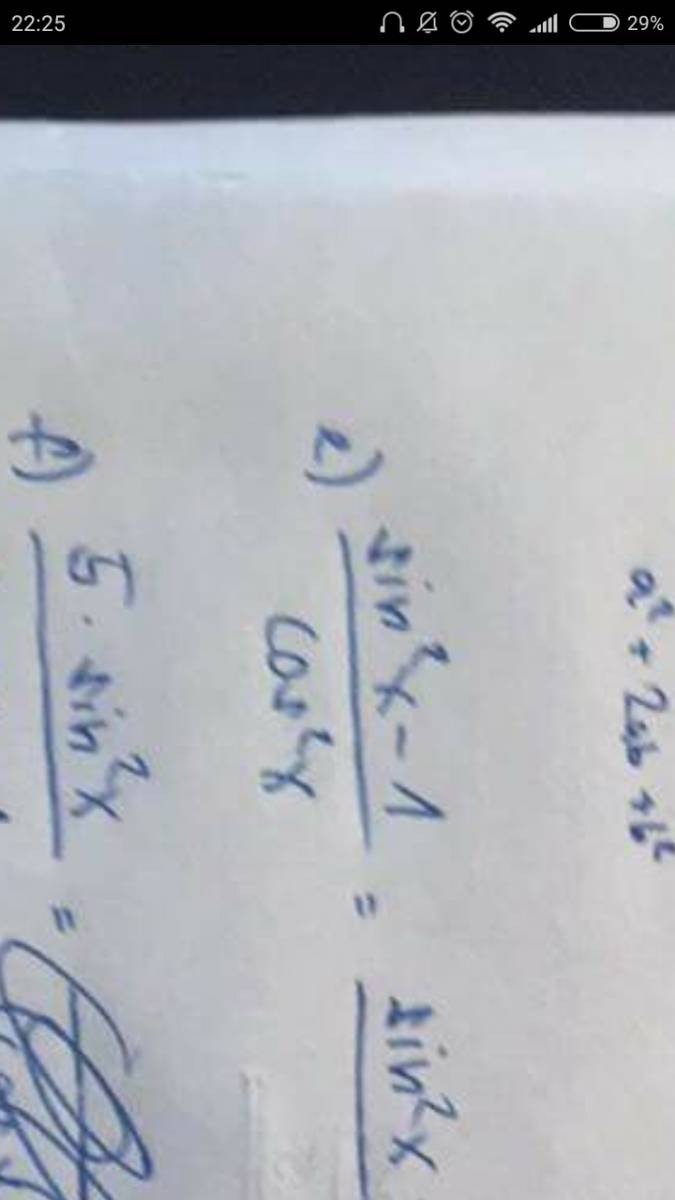 22:25 29%
a² + 2ab + b²
e) sin²x - 1 = sin²x
cos²x
f) 5 · sin²x =